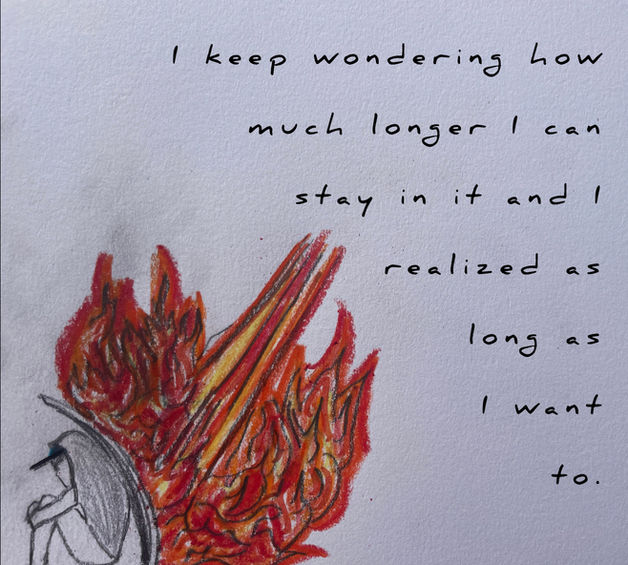 I keep wondering how
much longer I can
stay in it and I
realized as
long as
I want
to.